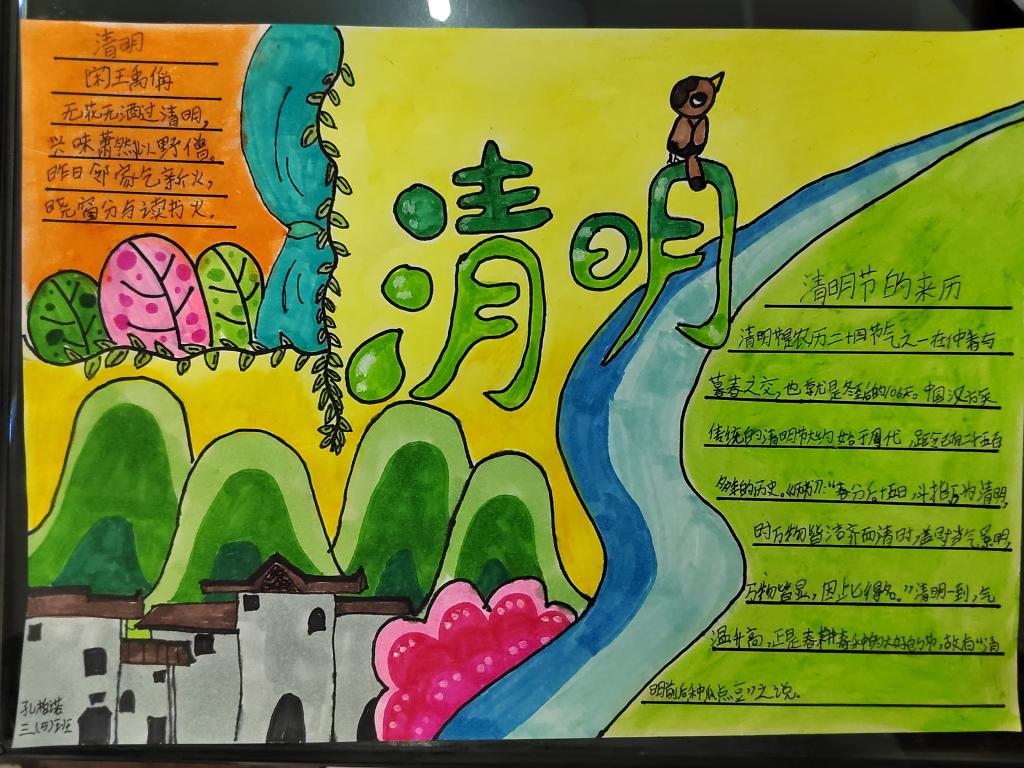 清明
宋王禹偁
无花无酒过清明,
兴味萧然似野僧。
昨日邻家乞新火,
晓窗分与读书灯.
清明
清明节的来历
清明节是农历二十四节气之一在仲春与
暮春之交,也就是冬至后的106天。中国汉族
传统的清明节大约始于周代,距今已有二千五百
多年的历史。《历书》:"春分后十五日,斗指丁,为清明,
时万物皆洁齐而清明,盖时当气清景明,
万物皆显,因此得名。"清明一到,气
温升高,正是春耕春种的大好时节,故有"清
明前后种瓜点豆"之说。
三(5)班